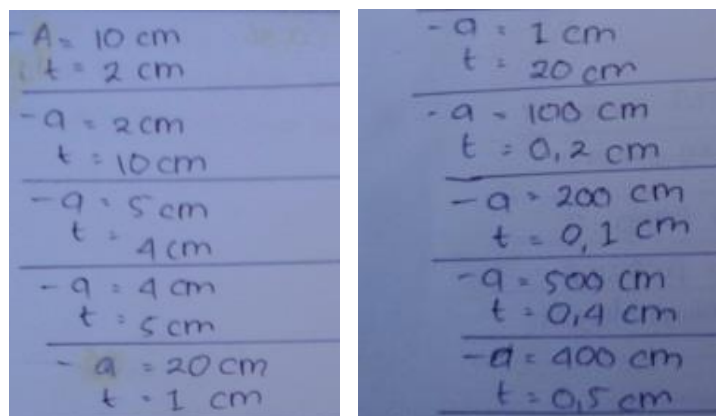 - A = 10 cm
t = 2 cm
- a = 2 cm
t = 10 cm
- a = 5 cm
t = 4 cm
- a = 4 cm
t = 5 cm
- a = 20 cm
t = 1 cm
- a = 1 cm
t = 20 cm
- a = 100 cm
t = 0,2 cm
- a = 200 cm
t = 0,1 cm
- a = 500 cm
t = 0,4 cm
- a = 400 cm
t = 0,5 cm